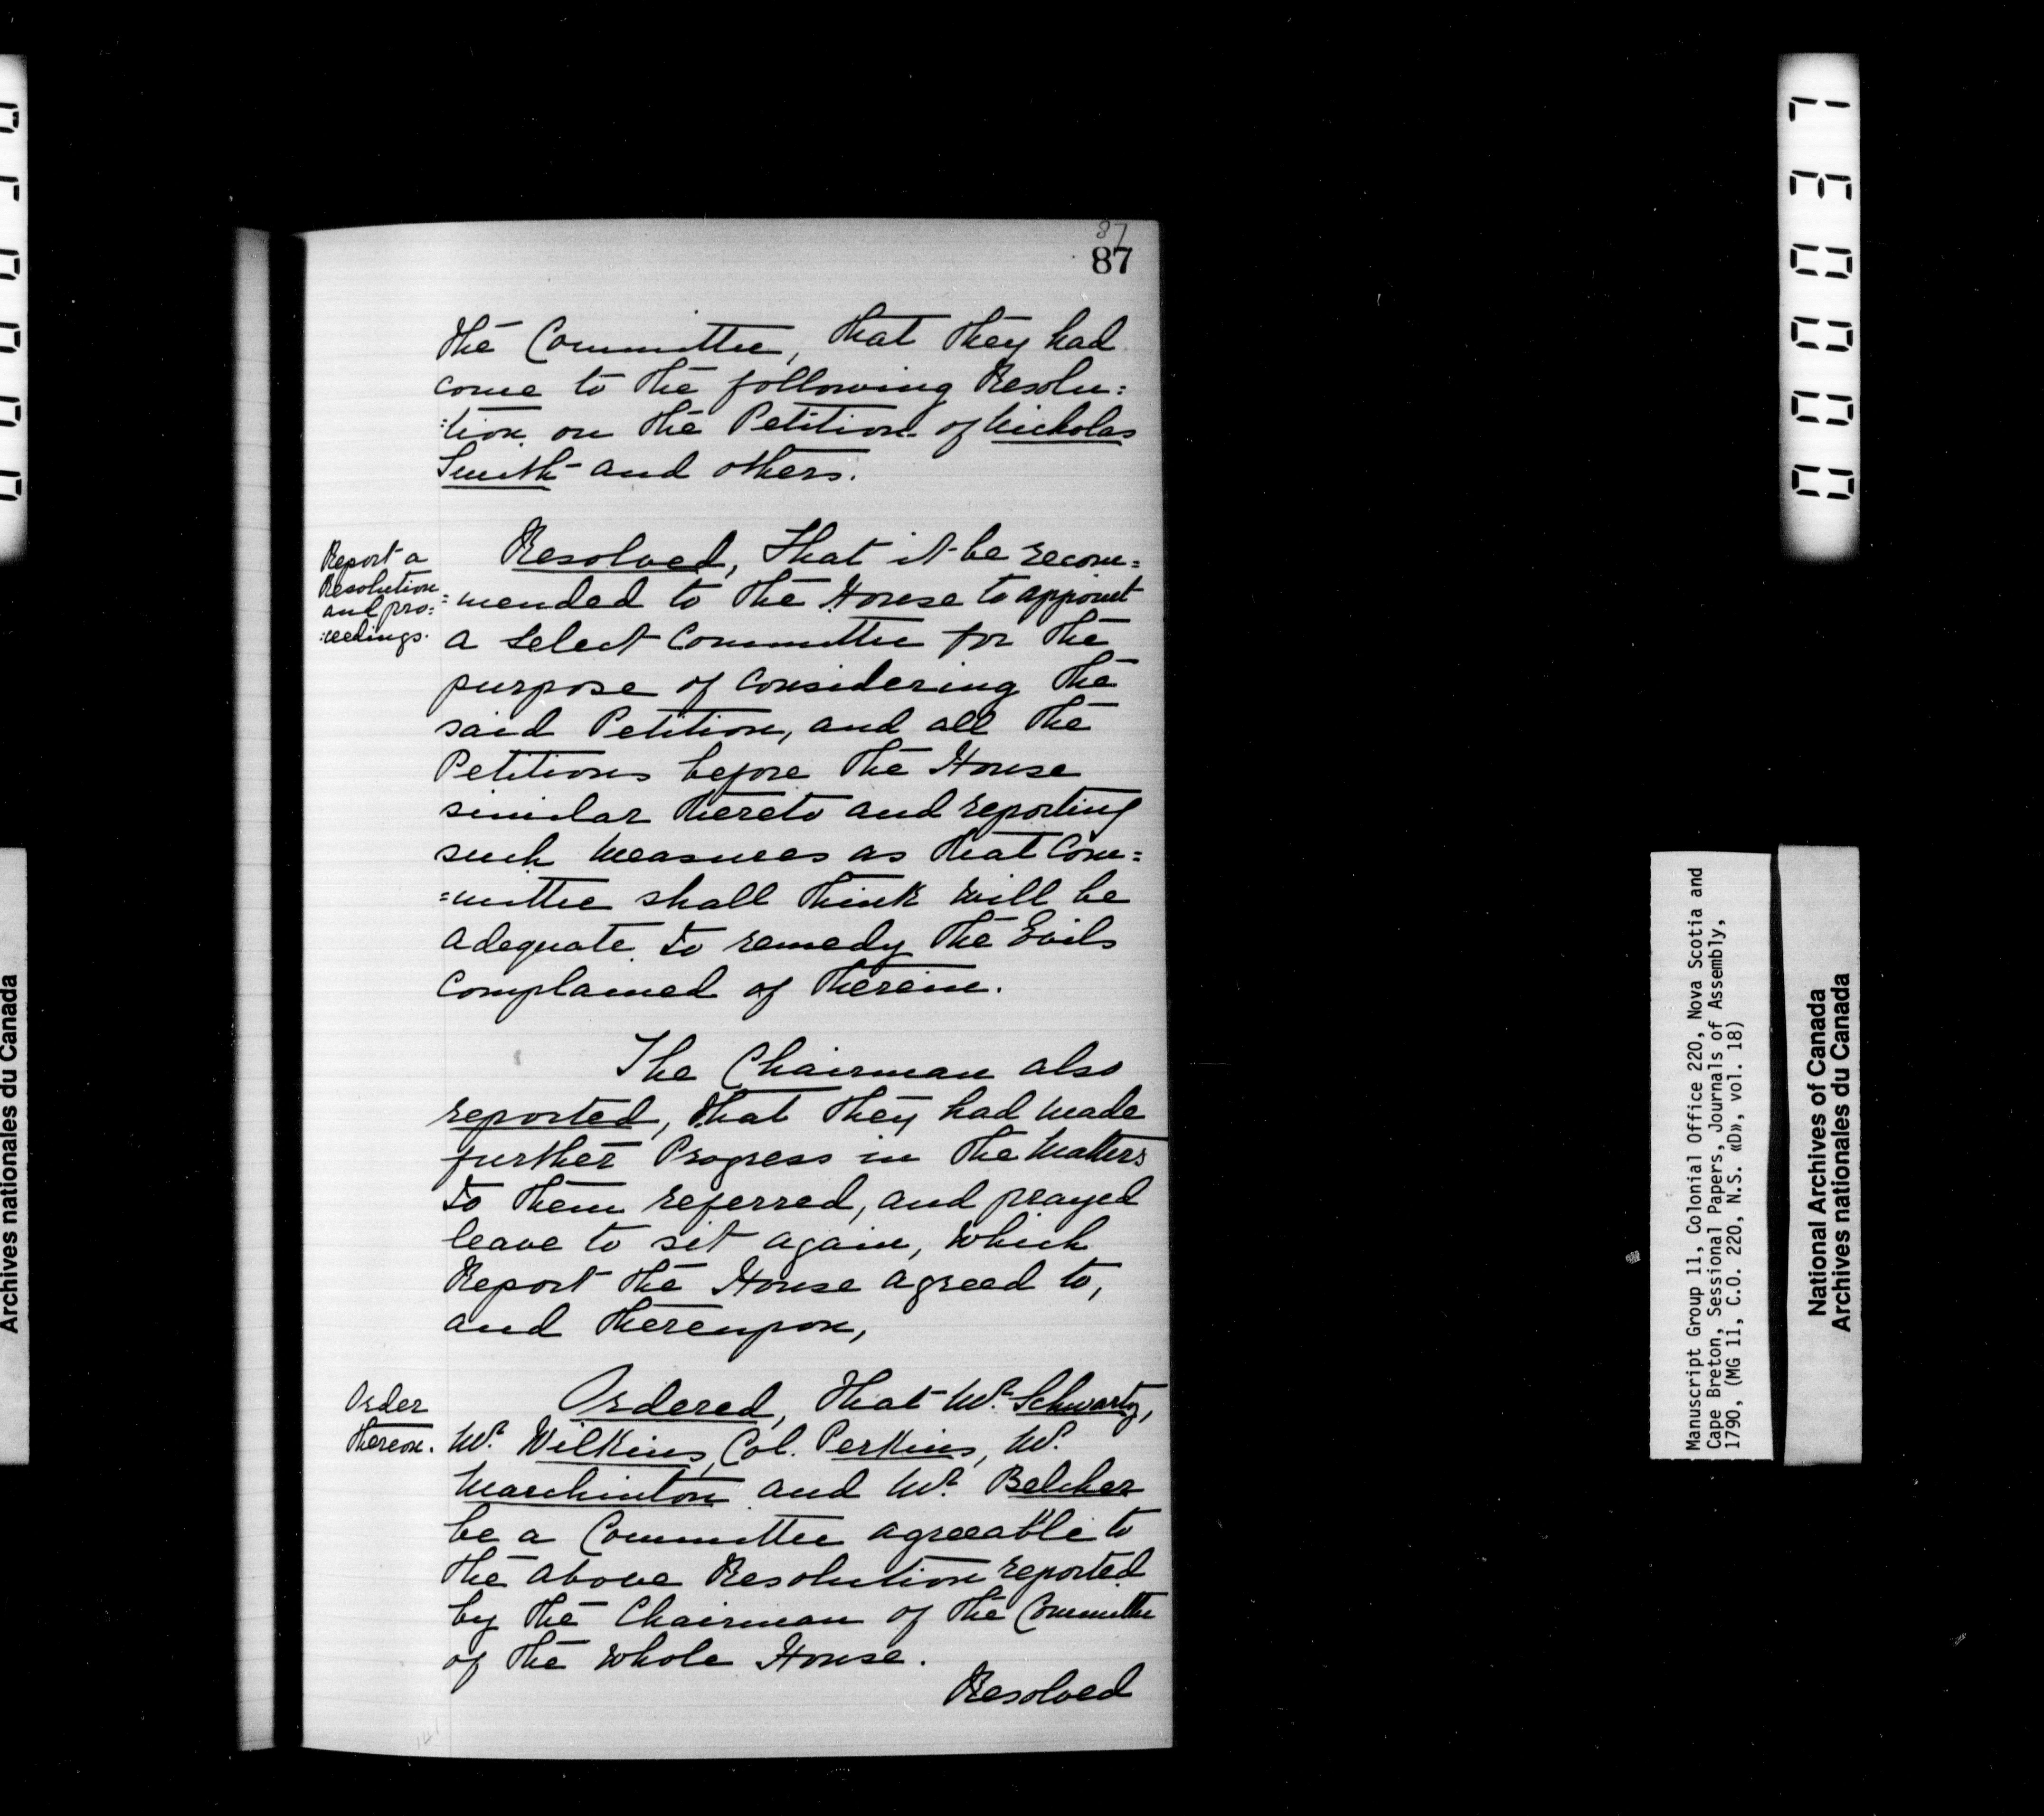 87
87
the Committee, that they had
come to the following Resolu:
:tion on the Petition of Nicholas
Smith and others.
Report a
Resolution
and pro:
:ceedings.
Resolved, That it be recom=
=mended to the House to appoint
a select Committee for the
purpose of considering the
said Petition, and all the
Petitions before the House
similar thereto and reporting
such Measures as that Com=
=mittee shall think will be
adequate to remedy the Evils
complained of therein.
The Chairman also
reported, that they had made
further Progress in the Matters
to them referred, and prayed
leave to sit again, which
Report the House agreed to,
and thereupon,
Order
thereon.
Ordered, That Mr. Schwartz,
Mr. Wilkins, Col. Perkins, Mr.
Marchinton and Mr. Belcher
be a Committee agreeable to
the above Resolution reported
by the Chairman of the Committee
of the whole House.
Resolved
Archives nationales du Canada
Manuscript Group 11, Colonial Office 220, Nova Scotia and
Cape Breton, Sessional Papers, Journals of Assembly,
1790, (MG 11, C.O. 220, N.S. «D», vol. 18)
National Archives of Canada
Archives nationales du Canada